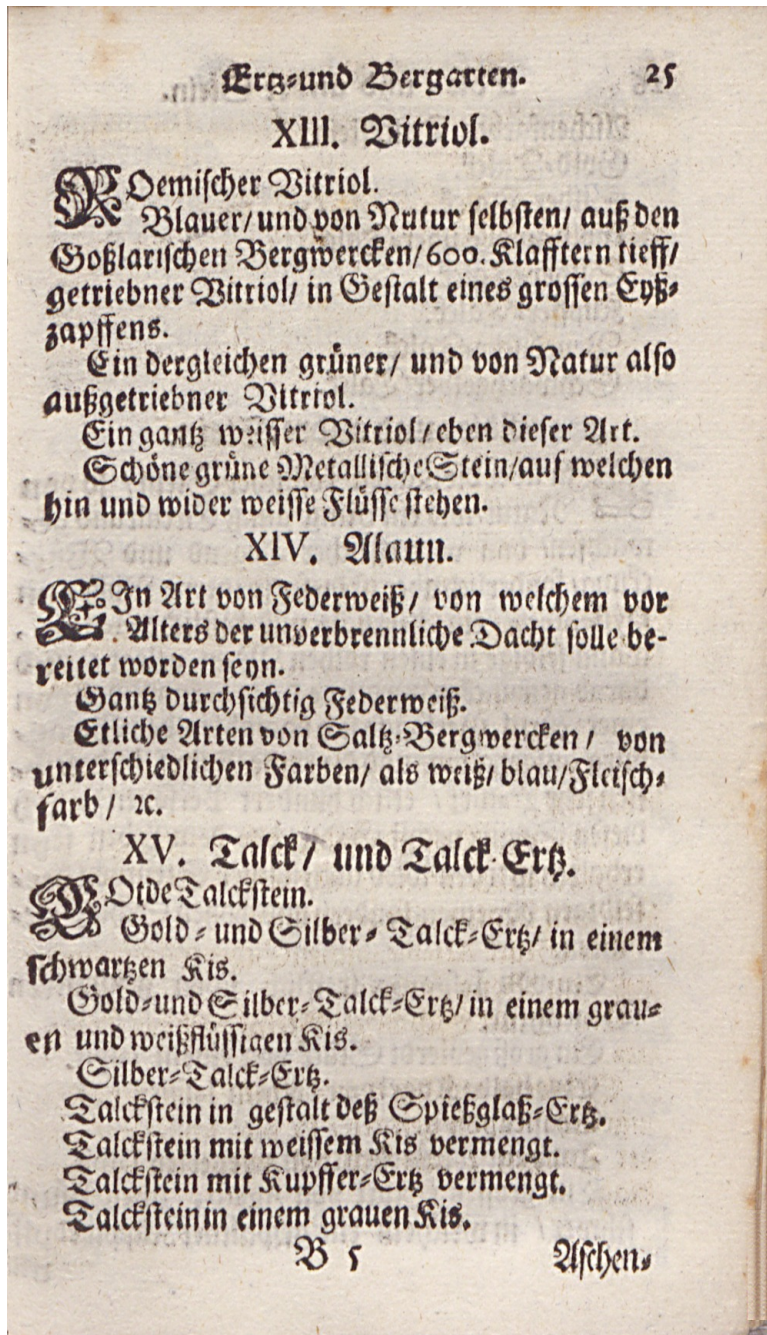 Ertz-und Bergarten. 25
XIII. Vitriol.
ROemischer Vitriol.
Blauer/und von Natur selbsten/ auß den
Goßlarischen Bergwercken/600. Klafftern tieff/
getriebner Vitriol/ in Gestalt eines grossen Eyß-
zapffens.
Ein dergleichen grüner/ und von Natur also
außgetriebner Vitriol.
Ein gantz weisser Vitriol/eben dieser Art.
Schöne grüne Metallische Stein/auf welchen
hin und wider weisse Flüsse stehen.
XIV. Alaun.
EIn Art von Federweiß/ von welchem vor
Alters der unverbrennliche Dacht solle be-
reitet worden seyn.
Gantz durchsichtig Federweiß.
Etliche Arten von Saltz-Bergwercken/ von
unterschiedlichen Farben/ als weiß/ blau/Fleisch-
farb/ ꝛc.
XV. Talck/ und Talck-Ertz.
ROtde Talckstein.
Gold- und Silber-Talck-Ertz/ in einem
schwartzen Kis.
Gold-und Silber-Talck-Ertz/ in einem grau-
en und weißflüssigen Kis.
Silber-Talck-Ertz.
Talckstein in gestalt deß Spießglaß-Ertz.
Talckstein mit weissem Kis vermengt.
Talckstein mit Kupffer-Ertz vermengt.
Talckstein in einem grauen Kis.
B 5 Aschen-